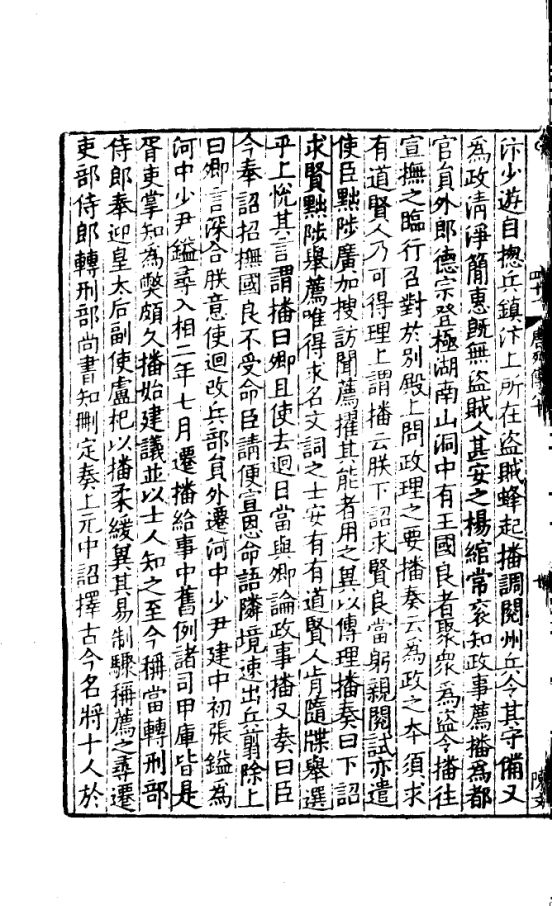 汴少遊自揔兵鎮汴上所在盗賊蜂起播調閱州兵令其守備又
為政清淨簡惠既無盗賊人甚安之楊綰常衮知政事薦播為都
官員外郎德宗登極湖南山洞中有王國良者聚衆為盗令播往
宣撫之臨行召對於別殿上問政理之要播奏云為政之本須求
有道賢人乃可得理上謂播云朕下詔求賢良當躬親閱試亦遣
使臣黜陟廣加搜訪聞薦擢其能者用之兾以傅理播奏曰下詔
求賢黜陟舉薦唯得求名文詞之士安有有道賢人肯隨牒舉選
乎上悅其言謂播曰卿且使去迴日當與卿論政事播又奏曰臣
今奉詔招撫國良不受命臣請便宣恩命語隣境速出兵翦除上
曰卿言深合朕意使迴改兵部員外遷河中少尹建中初張鎰為
河中少尹鎰尋入相二年七月遷播給事中舊例諸司甲庫皆是
胥吏掌知為獘頗久播始建議並以士人知之至今稱當轉刑部
侍郎奉迎皇太后副使盧杞以播柔緩兾其易制驟稱薦之尋遷
吏部侍郎轉刑部尚書知刪定奏上元中詔擇古今名將十人於